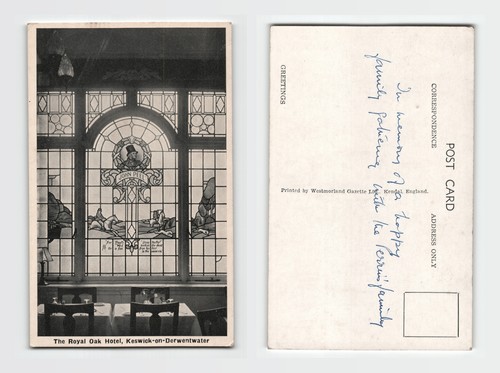 JOHN PEEL
The Royal Oak Hotel, Keswick-on-Derwentwater
POST CARD
CORRESPONDENCE
ADDRESS ONLY
GREETINGS
Printed by Westmorland Gazette Ltd., Kendal, England.
In memory of a happy
family gathering with the Perrins family